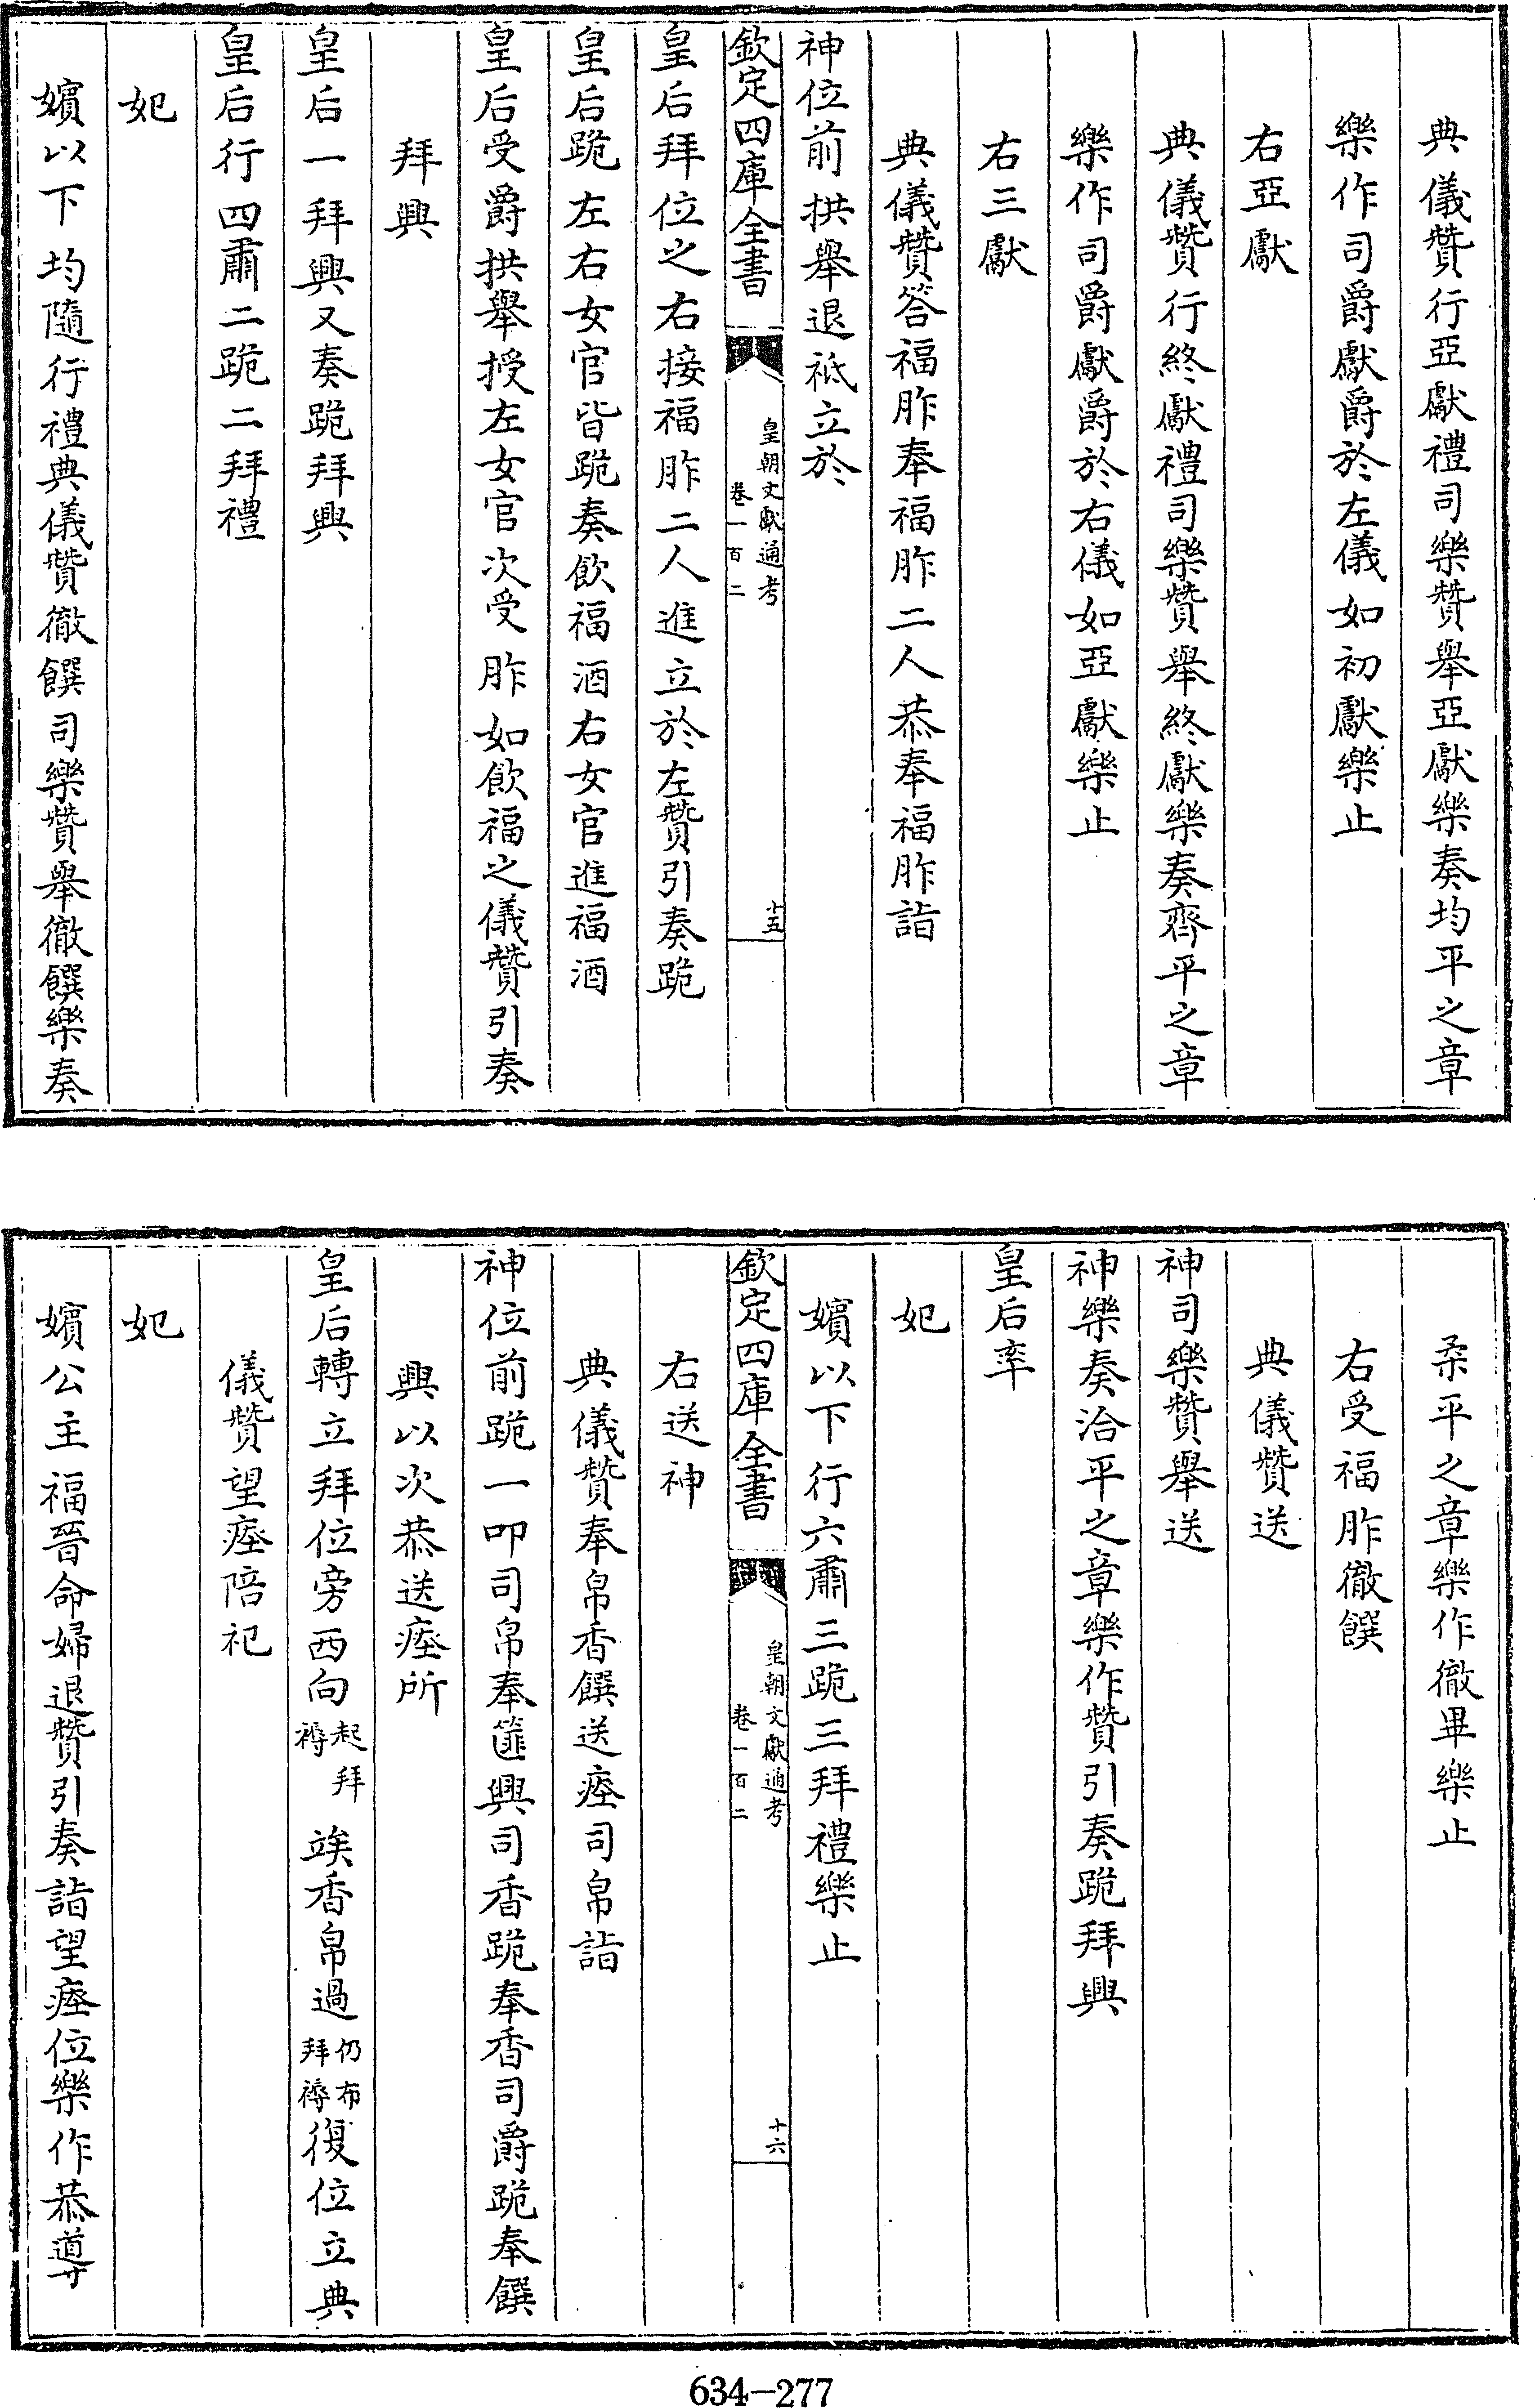 典儀贊行亞獻禮司樂贊舉亞獻樂奏均平之章
樂作司爵獻爵於左儀如初獻樂止
右亞獻
典儀贊行終獻禮司樂贊舉終獻樂奏齊平之章
樂作司爵獻爵於右儀如亞獻樂止
右三獻
典儀贊答福胙奉福胙二人恭奉福胙詣
神位前拱舉退祗立於
欽定四庫全書
皇朝文獻通考
卷一百二
十五
皇后拜位之右接福胙二人進立於左贊引奏跪
皇后跪左右女官皆跪奏飲福酒右女官進福酒
皇后受爵拱舉授左女官次受胙如飲福之儀贊引奏
拜興
皇后一拜興又奏跪拜興
皇后行四肅二跪二拜禮
妃
嬪以下均隨行禮典儀贊徹饌司樂贊舉徹饌樂奏
柔平之章樂作徹畢樂止
右受福胙徹饌
典儀贊送
神司樂贊舉送
神樂奏洽平之章樂作贊引奏跪拜興
皇后率
妃
嬪以下行六肅三跪三拜禮樂止
欽定四庫全書
皇朝文獻通考
卷一百二
十六
右送神
典儀贊奉帛香饌送瘞司帛詣
神位前跪一叩司帛奉篚興司香跪奉香司爵跪奉饌
興以次恭送瘞所
皇后轉立拜位旁西向起拜褥竢香帛過仍布拜褥復位立典
儀贊望瘞陪祀
妃
嬪公主福晉命婦退贊引奏詣望瘞位樂作恭導
634-277